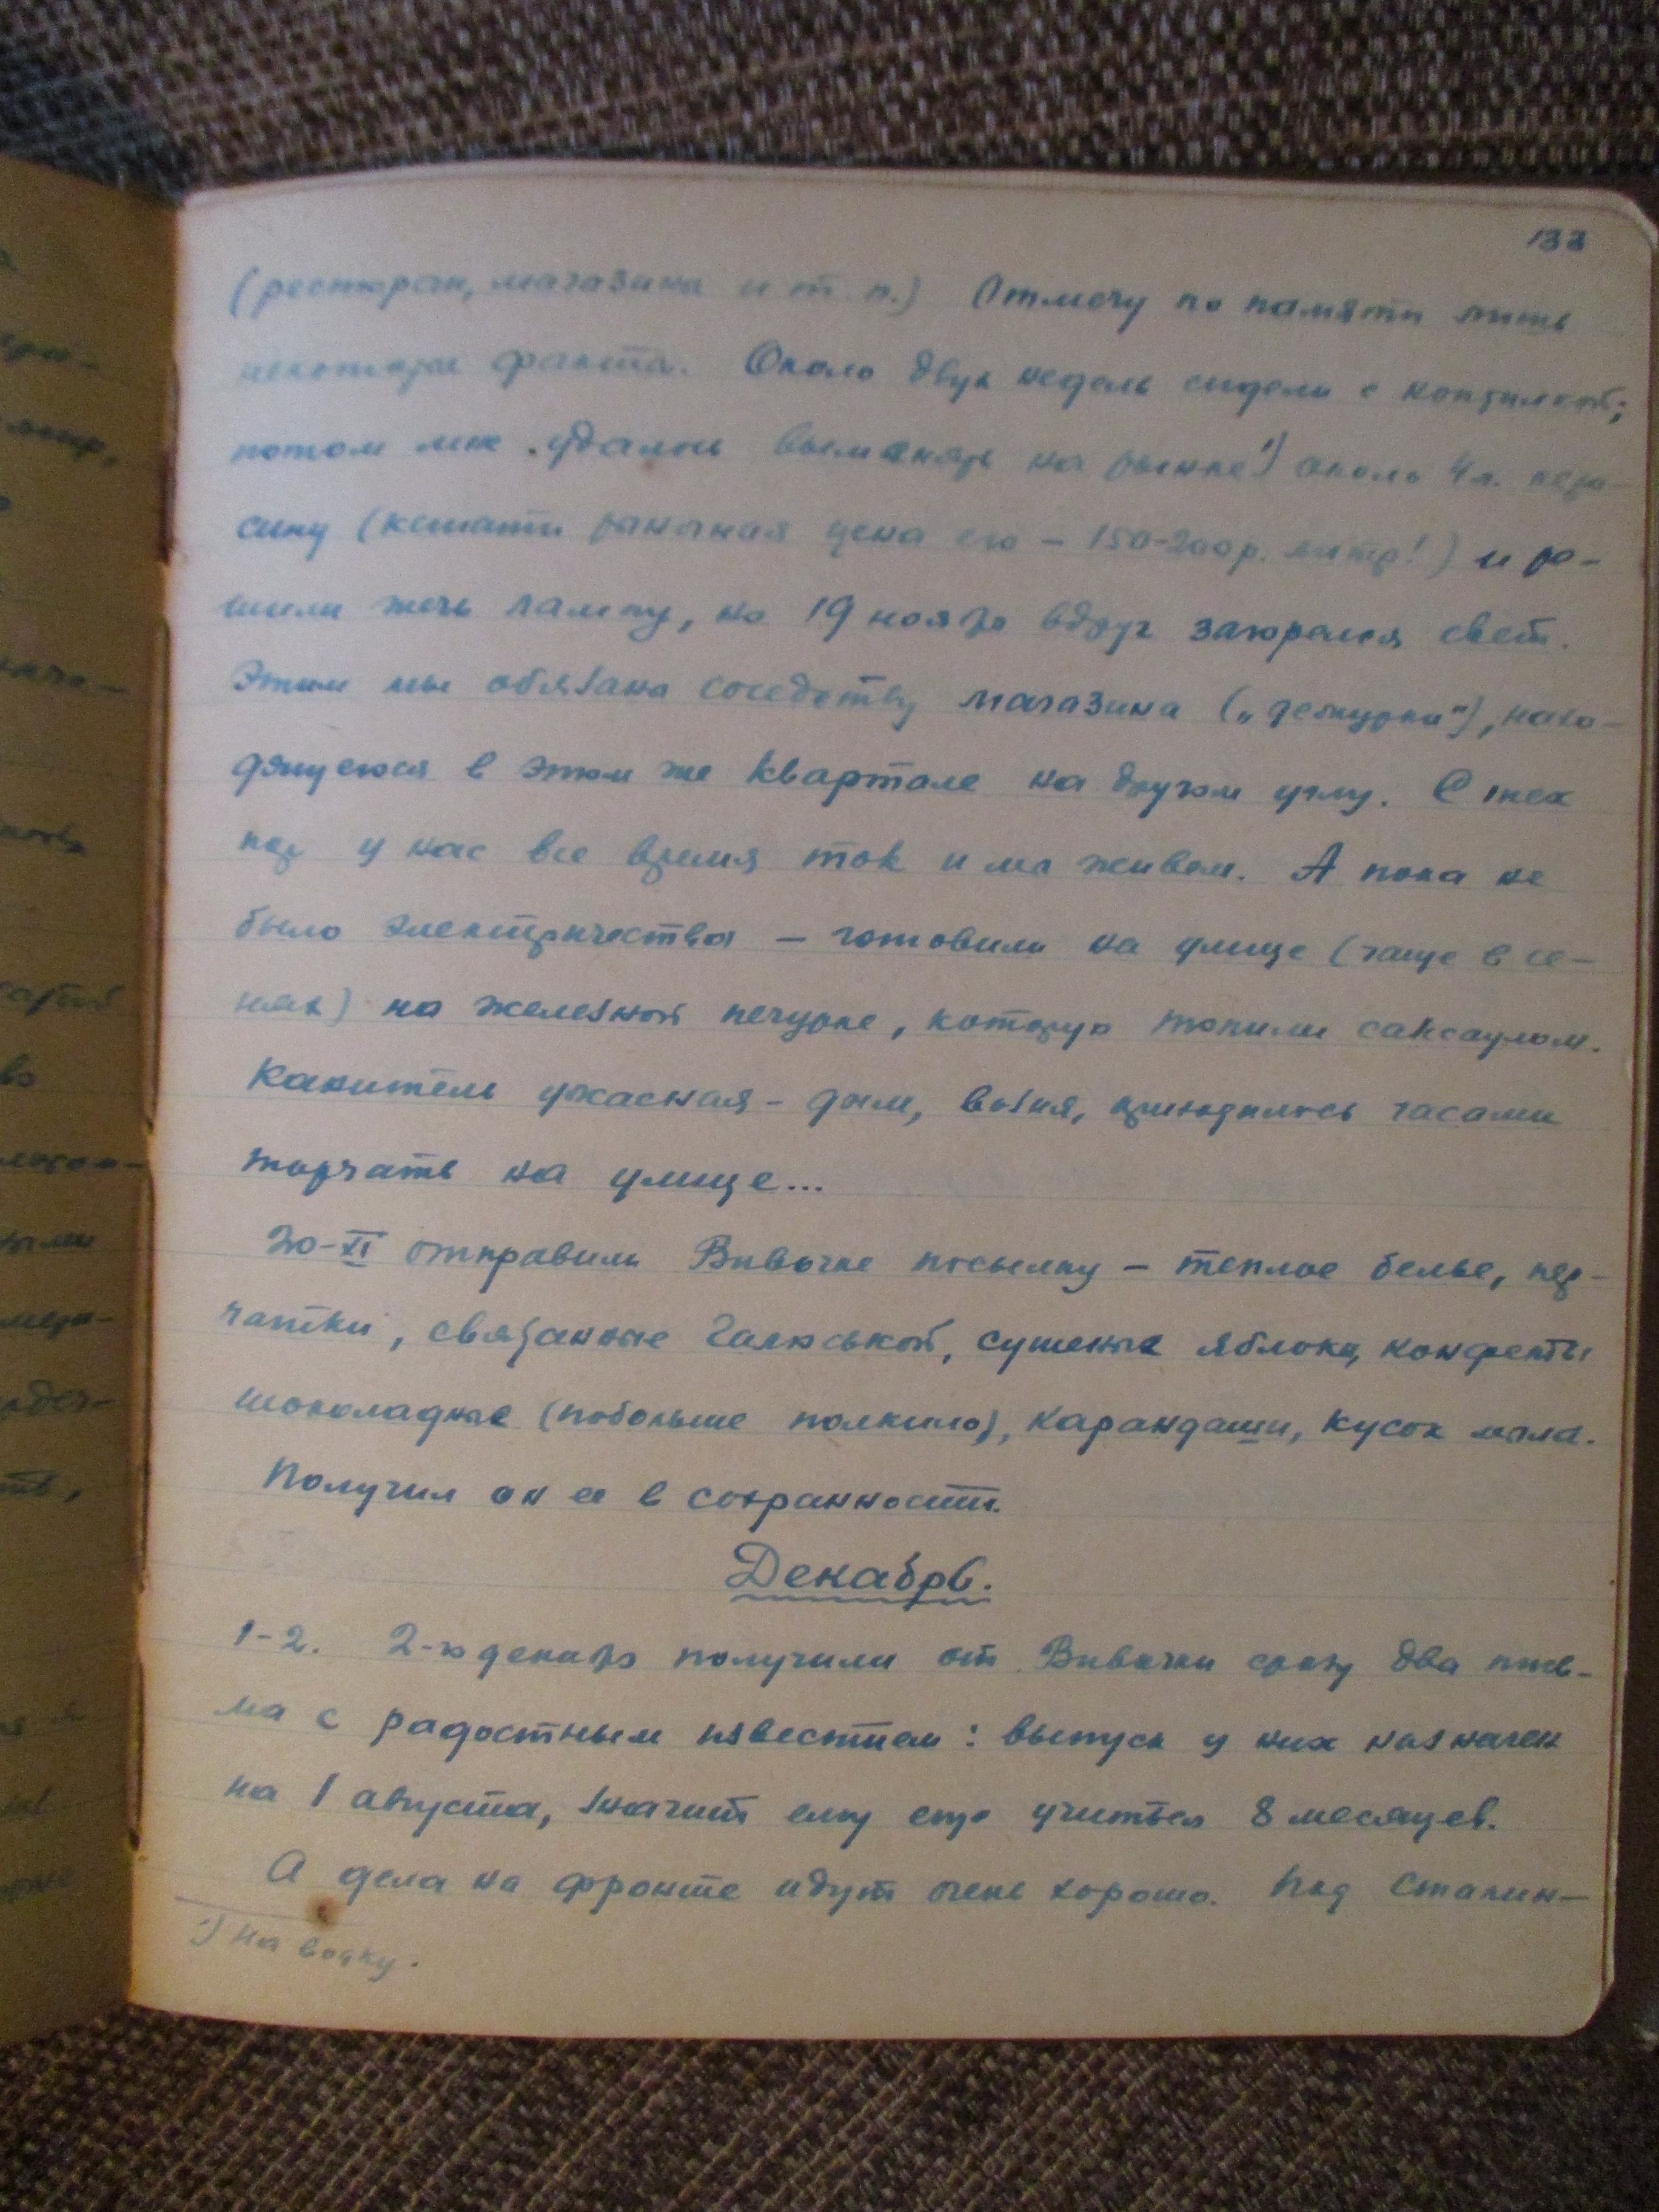 133
(ресторан, магазина и т. п.) Отмечу по памяти лишь
некоторые факты. Около двух недель сидели с коптилкой;
потом мне удалось выменять на рынке ¹) около 4 л. керо-
сину (кстати рыночная цена его – 150-200 р. литр!) и ре-
шили жечь лампу, но 19 ноября вдруг загорелся свет.
Этим мы обязаны соседству магазина („дежурки"), нахо-
дящегося в этом же квартале на другом углу. С тех
пор у нас все время ток и мы живем. А пока не
было электричества – готовили на улице (чаще в се-
нях) на железной печурке, которую топили саксаулом.
Канитель ужасная – дым, возня, приходилось часами
торчать на улице...
20-XI отправили Вивочке посылку – теплое белье, пер-
чатки, связанные Галюськой, сушеные яблоки, конфекты
шоколадные (побольше полкило), карандаши, кусок мыла.
Получил он ее в сохранности.
Декабрь.
1-2. 2-го декабря получили от Вивочки сразу два пись-
ма с радостным известием: выпуск у них назначен
на 1 августа, значит ему еще учиться 8 месяцев.
А дела на фронте идут очень хорошо. Под Сталин-
¹) На водку.